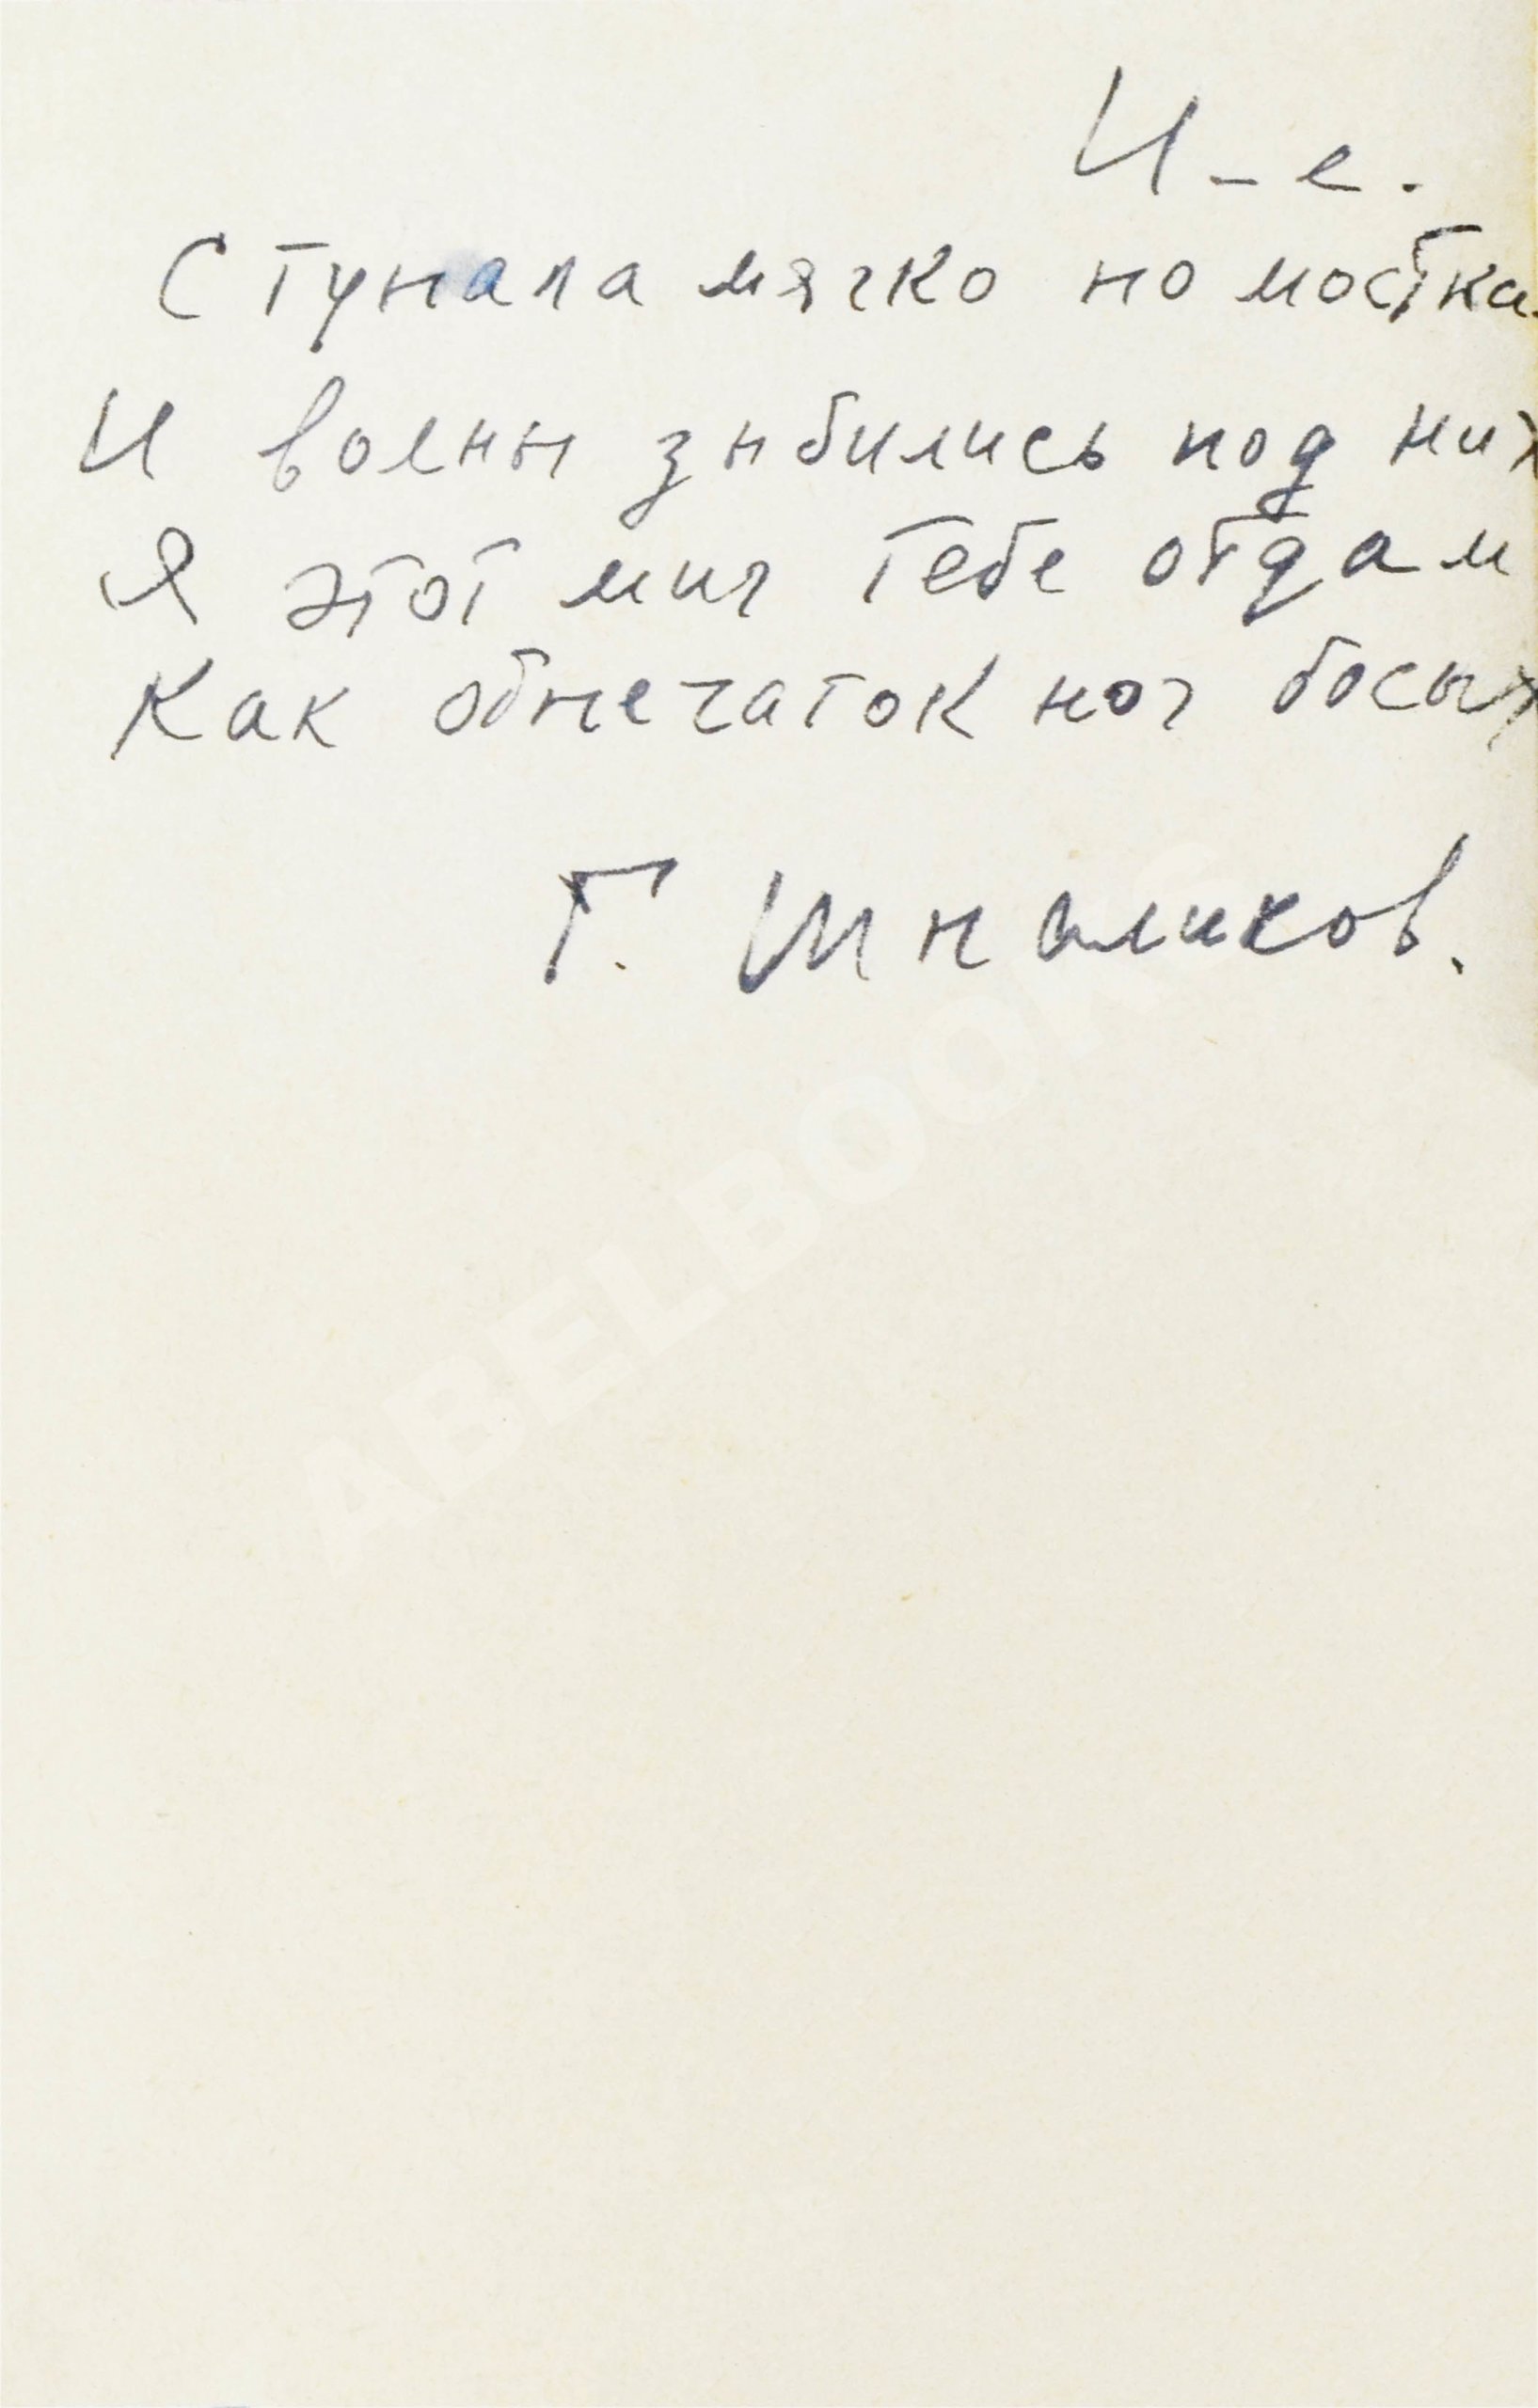 И-е.
Ступала мягко по мостка
И волны зыбились под них
Я этот миг тебе отдам
Как отпечаток ног босых
Г. Шпаликов.
ABELBOOKS